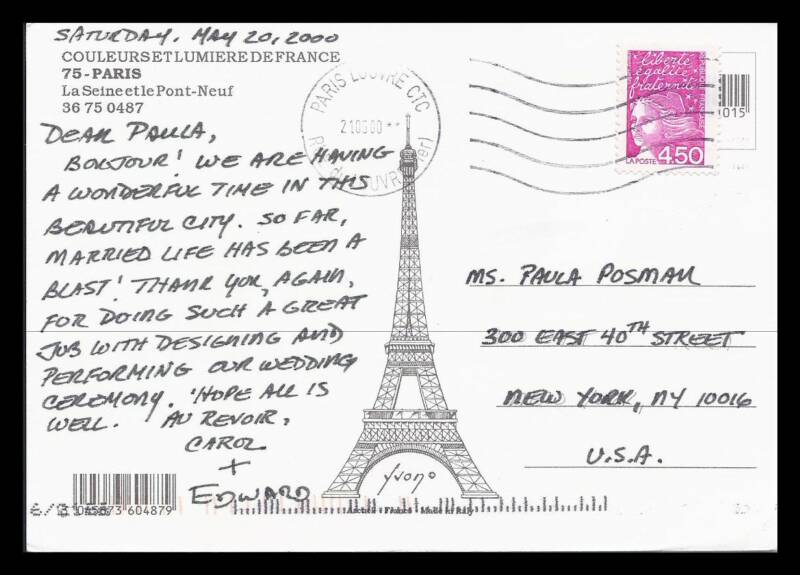 SATURDAY, MAY 20, 2000
COULEURS ET LUMIERE DE FRANCE
75 - PARIS
La Seine et le Pont-Neuf
36 75 0487
DEAR PAULA,
BONJOUR! WE ARE HAVING
A WONDERFUL TIME IN THIS
BEAUTIFUL CITY. SO FAR,
MARRIED LIFE HAS BEEN A
BLAST! THANK YOU, AGAIN,
FOR DOING SUCH A GREAT
JOB WITH DESIGNING AND
PERFORMING OUR WEDDING
CEREMONY. 'HOPE ALL IS
WELL. AU REVOIR,
CAROL
+
EDWARD
3 045873 604879
PARIS LOUVRE CTC
210500
liberté
égalité
fraternité
LA POSTE
4,50
015
MS. PAULA POSMAN
300 EAST 40TH STREET
NEW YORK, NY 10016
U.S.A.
Yvon
France - Made in Italy